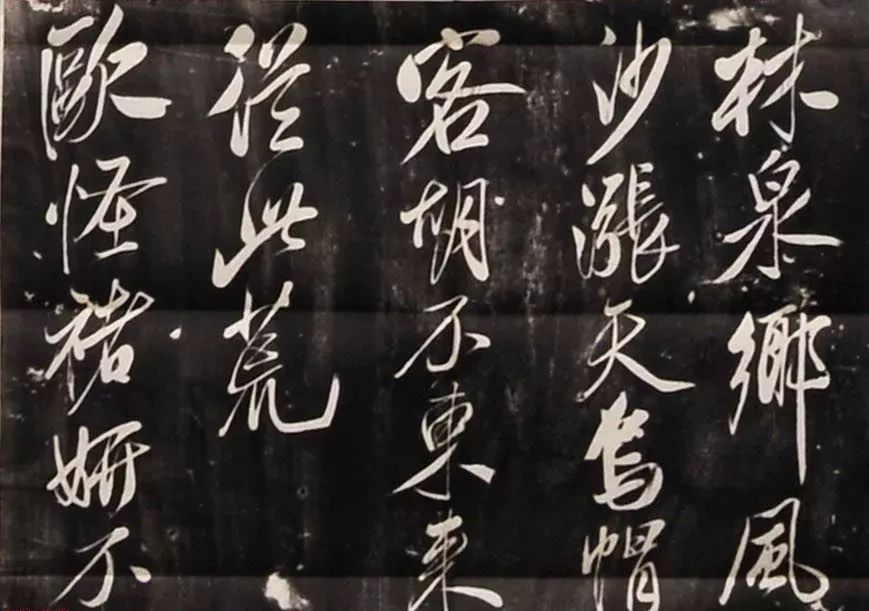 林泉鄉風
沙漲天烏帽
客胡不東來
從此荒
歐怪褚妍不